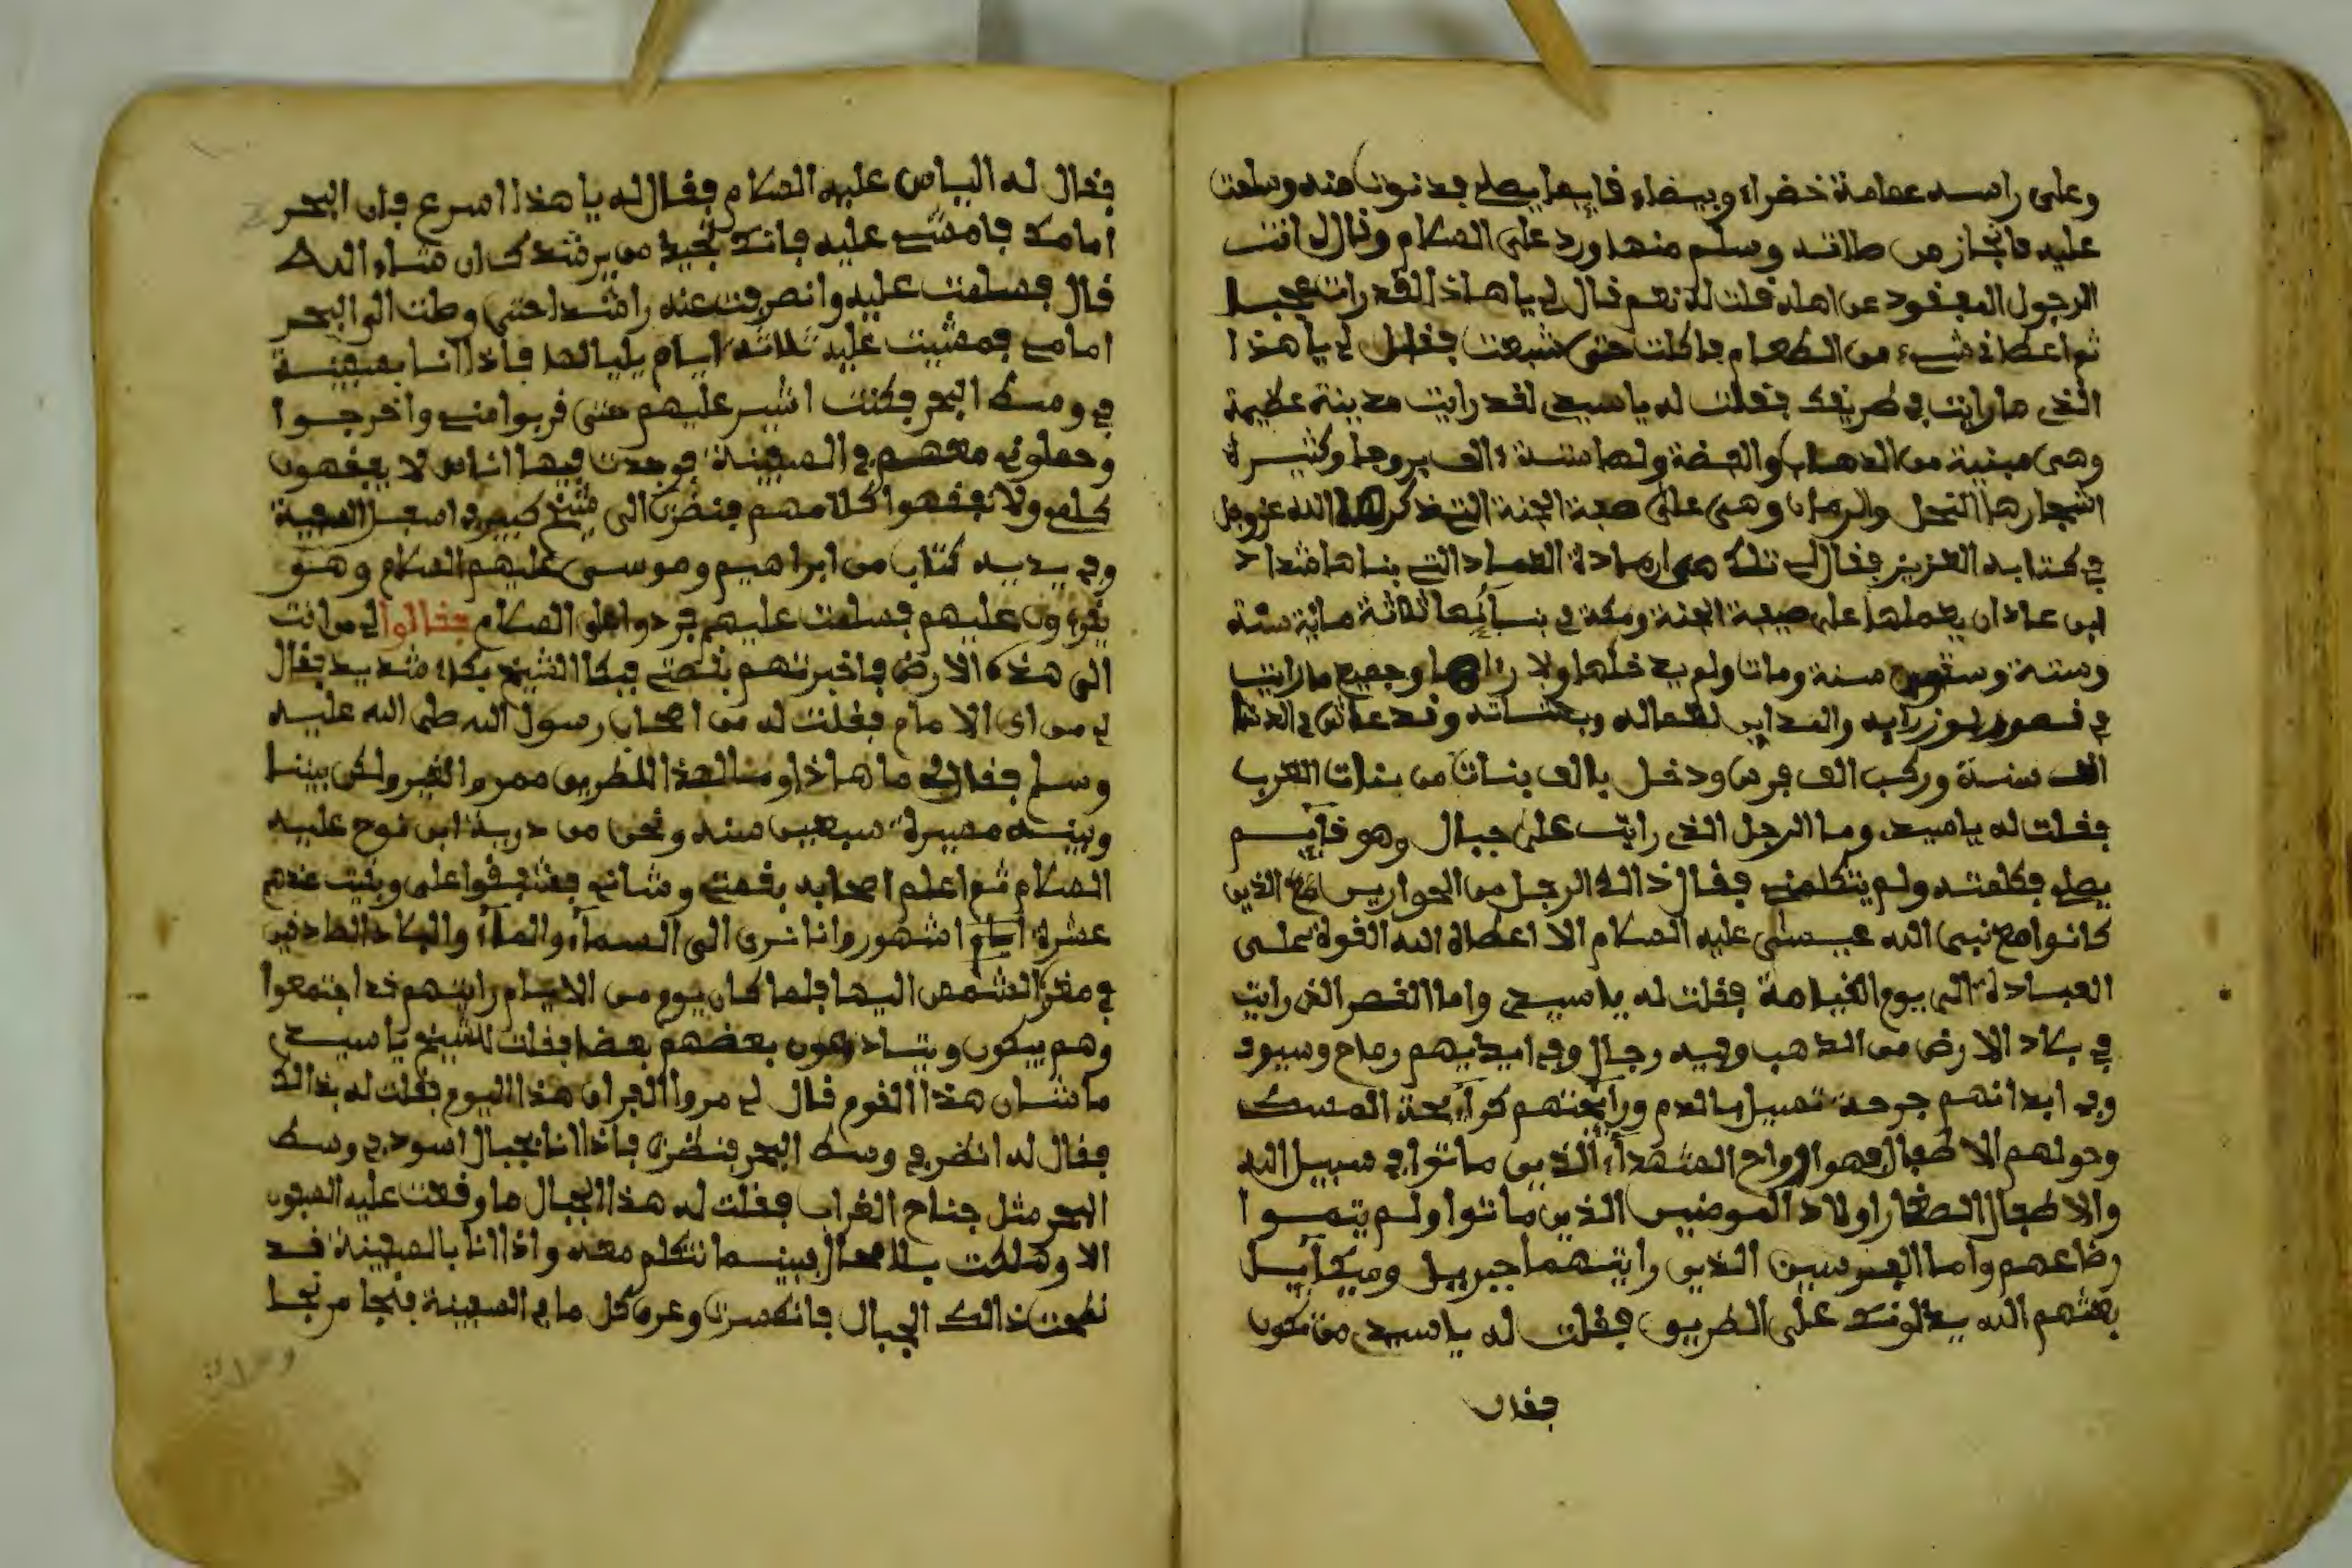 وعلى راسه عمامة خضراء وبيضاء فايما يصلي فدنوت منه وسلمت
عليه فانجاز من صلاته وسلم منها ورد على السلام وفال انت
الرجول المفقود عن اهله فلت له نعم فال لي يا هاذا لفد رايت عجبا
ثم اعطاني شيء من الطعام فاكلت حتى شبعت ففال لي يا هذا
الذي ما رايت في طريفك ففلت له يا سيدي لفد رايت مدينة عظيمة
وهي مبنية من الذهب والفضة ولها ستة الف بروجا وكثيرة
اشجارها النخل والرمان وهي على صفة الجنة التي ذكر الله عزوجل
في كتابه العزيز ففال لي تلك هي ارم ذاة العماد التي بناها شداد
ابن عاد ان يعملها على صفة الجنة ومكة في بنيآئها ثلاثة ماية سنة
وستة وستون سنة ومات ولم يدخلها ولا رءاها وجميع ما رايت
في فصور لوزرايه والمداين لعماله وبطنانته وفد عاش في الدنيا
الف سنة وركب الف فرس ودخل بالف بنات من بنات العرب
ففلت له يا سيدي وما الرجل الذي رايت على جبال وهو فآيم
يصلي فكلمته ولم يتكلمني ففال ذالك الرجل من الحواريين مع الذين
كانوا مع نبي الله عيسى عليه السلام الا اعطاه الله الفوة على
العبادة الى يوم الفيامة ففلت له يا سيدي واما الفصر الذي رايت
في بلاد الارض من الذهب وفيه رجال وفي ايديهم رماح وسيوف
وفي ابدانهم جرحة تسيل بالدم ورآيحتهم كرآيحة المسك
وحولهم الاطفال فهو ارواح الشهدآء الذين ماتوا في سبيل الله
والاطفال الصغار اولاد المومنين الذين ماتوا ولم يتموا
رضاعهم واما الفرسين الذين رايتهما جبريل وميكآيل
بعثهم الله يدلونك على الطريو ففلت له يا سيدي من تكون
ففال
ففال له الياس عليه السلام ففال له يا هذا اسرع فان البحر
امامك فامشي عليه فانك تجيد من يرشدك ان شاء الله
فال فسلمت عليه وانصرفت عنه راشدا حتى وصلت الى البحر
امامي فمشيت عليه ثلاثة ايام بليالها فاذا انا بسفينة
في وسط البحر فكنت اشير عليهم حتى فربوا مني واخرجوا
وحملوني معهم في السفينة فوجدت فيها اناس لا يففهون
كلامي ولا نففهوا كلامهم فنضرت الى شيخ كبير في اسفل السفينة
وفي يديه كتاب من ابراهيم وموسى عليهم السلام وهو
يفرءون عليهم فسلمت عليهم فردوا على السلام ففالوا لي من انت
الى هذه الارض فاخبرتهم بفصتي فبكا الشيخ بكاء شديد ففال
لي من اى الامام ففلت له من اصحاب رسول الله صلى الله عليه
وسلم ففال لي ما هاذا ومنا لهذا الطريق ممر والغير ولكن بيننا
وبينه مسيرة سبعين سنة ونحن من درية ابن نوح عليه
السلام ثم اعلم اصحابه بفصتي وشاني فشففوا علي وبفيت عندهم
عشرة ايام اشهور وانا نرى الى السمآء والمآء والبلاد الصادفين
في مفر الشمس اليها فلما كان يوم من الايام رايتهم فد اجتمعوا
وهم يبكون ويتسادعون بعضهم بعضا ففلت للشيخ يا سيدي
ما شان هذا الفوم فال لي مروا الفران هذا اليوم ففلت له بذالك
ففال له انضر في وسط البحر فنضرت فاذا انا بجبال اسود في وسط
البحر مثل جناح الغراب ففلت له هذا الجبال ما وفعت عليه السفون
الا وهلكت بلا محال فبينما نتكلم معه واذا انا بالسفينة فد
نطحت ذالك الجبال فانكسرت وغرق كل ما في السفينة فنجا من نجا